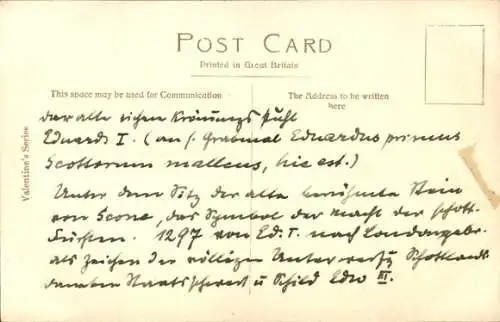 POST CARD
Printed in Great Britain
This space may be used for Communication
The Address to be written
here
Valentine's Series
der alte eichen Krönungsstuhl
Eduards I. (an s. Grabmal Eduardus primus
Scottorum malleus, hic est.)
Unter dem Sitz der alte berühmte Stein
von Scone, das Symbol der Macht der schott.
Fürsten. 1297 von Ed. I. nach London gebr.
als Zeichen der völligen Unterwerfg Schottlands
daneben Staatsschwert u Schild Edw III.